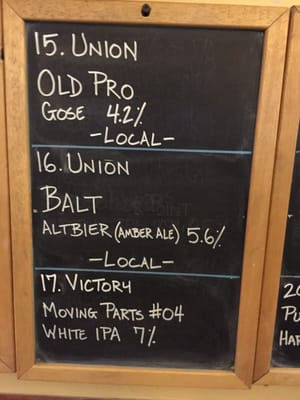 15. UNION
OLD PRO
GOSE 4.2%
-LOCAL-
16. UNION
BALT
ALTBIER (AMBER ALE) 5.6%
-LOCAL-
17. VICTORY
MOVING PARTS #04
WHITE IPA 7%
20
PU
HAR